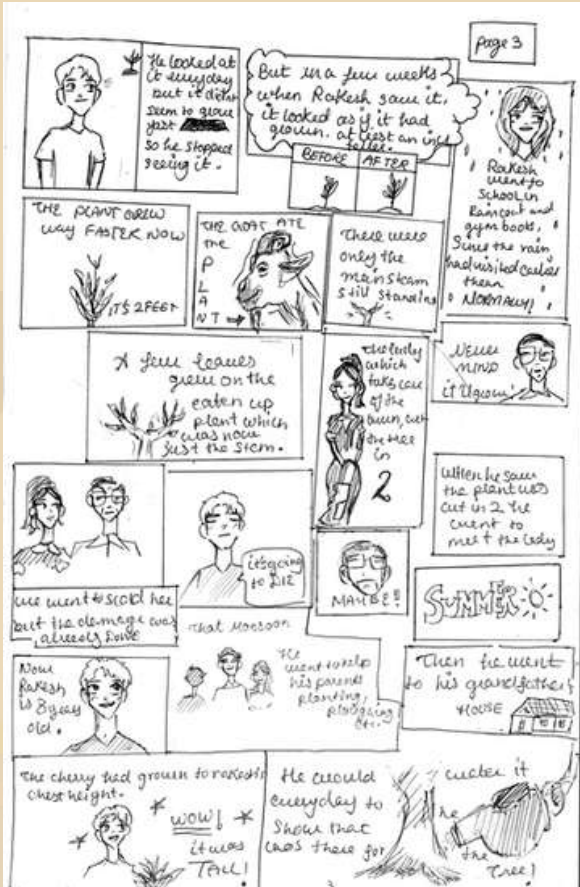 page 3
He looked at
it everyday
but it didnt
seem to grow
fast
so he stopped
seeing it.
But in a few weeks
when Rakesh saw it,
it looked as if it had
grown. at lest an inch
taller.
BEFORE
AFTER
Rakesh
went to
School in
Raincoat and
gym boots.
Since the rain
had visited earlier
than
NORMALLY!
THE PLANT GREW
way FASTER NOW
IT'S 2FEET
THE GOAT ATE
the
PLANT
There were
only the
main steam
still standing
A few leaves
grew on the
eaten up
plant which
was now
just the stem.
the lady
which
takes care
of the
the tree
in
2
NEVER
MIND
it'll grow!
when he saw
the plant was
cut in 2 he
went to
meet the lady
it's going
to DIE
MAYBE!!
SUMMER
went to scold her
but the damage was
already done
That Monsoon
He
went to help
his parents
planting,
ploughing
etc.
Now
Rakesh
is 8 year
old.
Then he went
to his grandfather's
HOUSE
The cherry had grown to rakesh's
chest height.
WOW!
it was
TALL!
He would water it
everyday to
Show that he
was there for the
Tree!